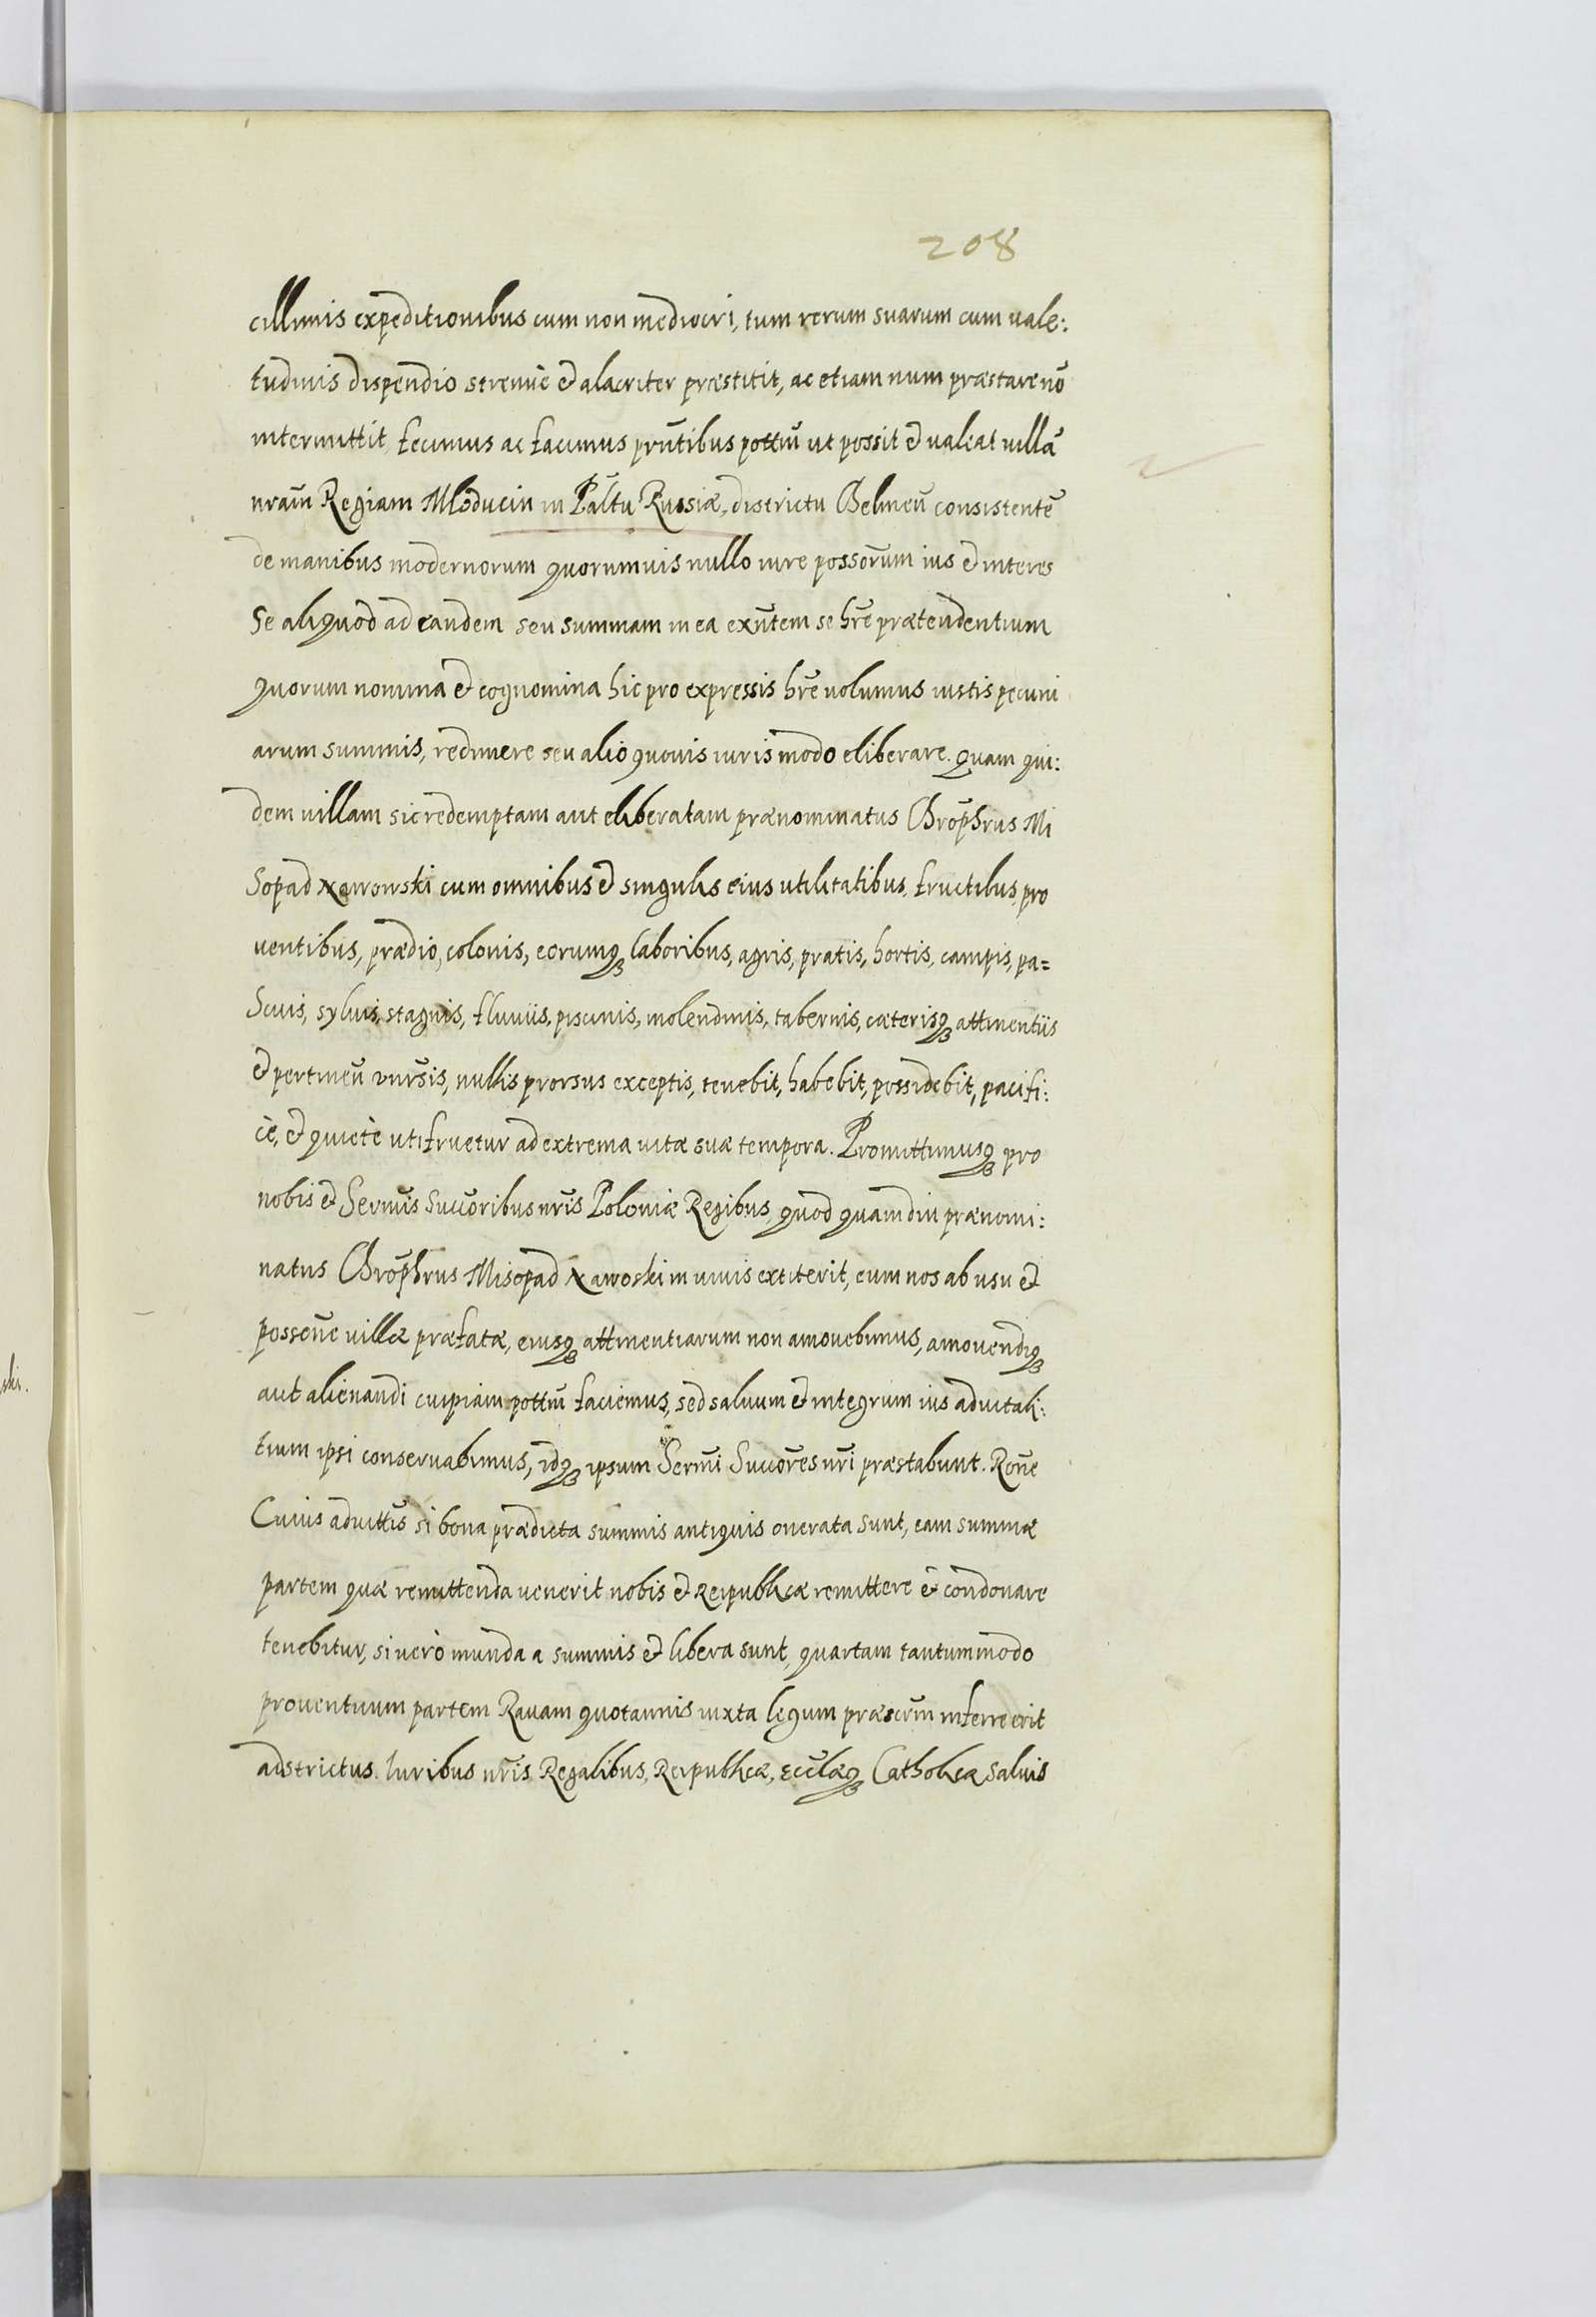 208
cillimis expeditionibus cum non mediocri, tum rerum suarum cum vale:
tudinis dispendio strenuè et alacriter præstitit, ac etiam num præstare nō
intermittit, fecimus ac facimus prn̄tibus potttm̄ ut possit et valeat villā
nram̄ Regiam Młoducin in Pal̄tu Russiæ, districtu Chelmen̄ consistentē
de manibus modernorum quorumvis nullo iure possōrum ius et interes
se aliquod ad eandem seu summam in ea exn̄tem se hrē prætendentium
quorum nomina et cognomina hic pro expressis hrē volumus iustis pecuni
arum summis, redimere seu alio quovis iuris modo eliberare. Quam qui:
dem villam sic redemptam aut eliberatam prænominatus Chrōphrus Mi
sopad Xawowski cum omnibus et singulis eius utilitatibus, fructibus, pro
ventibus, prædio, colonis, eorumq3 laboribus, agris, pratis, hortis, campis, pa=
scuis, sylvis, stagnis, fluviis, piscinis, molendinis, tabernis, cæterisq3 attinentiis
et pertinen̄ vnr̄sis, nullis prorsus exceptis, tenebit, habebit, possidebit, pacifi:
cè, et quietè utifruetur ad extrema vitæ suæ tempora. Promittimusq3 pro
nobis et Serm̄is Succōribus nr̄is Poloniæ Regibus, quod quamdiu prænomi:
natus Chrōphrus Misopad Xawoski in vivis extiterit, eum nos ab usu et
possen̄e villæ præfatæ, eiusq3 attinentiarum non amovebimus, amovendiq3
aut alienandi cuipiam potttm̄ faciemus, sed salvum et integrum ius advitali:
tium ipsi conservabimus, idq3 ipsum Serm̄i Succōres nr̄i præstabunt. Ron̄e
Cuius advittis̄ si bona prædicta summis antiquis onerata sunt, eam summæ
partem quæ remittenda venerit nobis et Reipublicæ remittere et condonare
tenebitur, si verò munda a summis et libera sunt, quartam tantummodo
proventuum partem Ravam quotannis iuxta legum præscrm̄ inferre erit
adstrictus. Iuribus nr̄is Regalibus, Reipublicæ, Eccl̄æq3 Catholicæ salvis
ski.